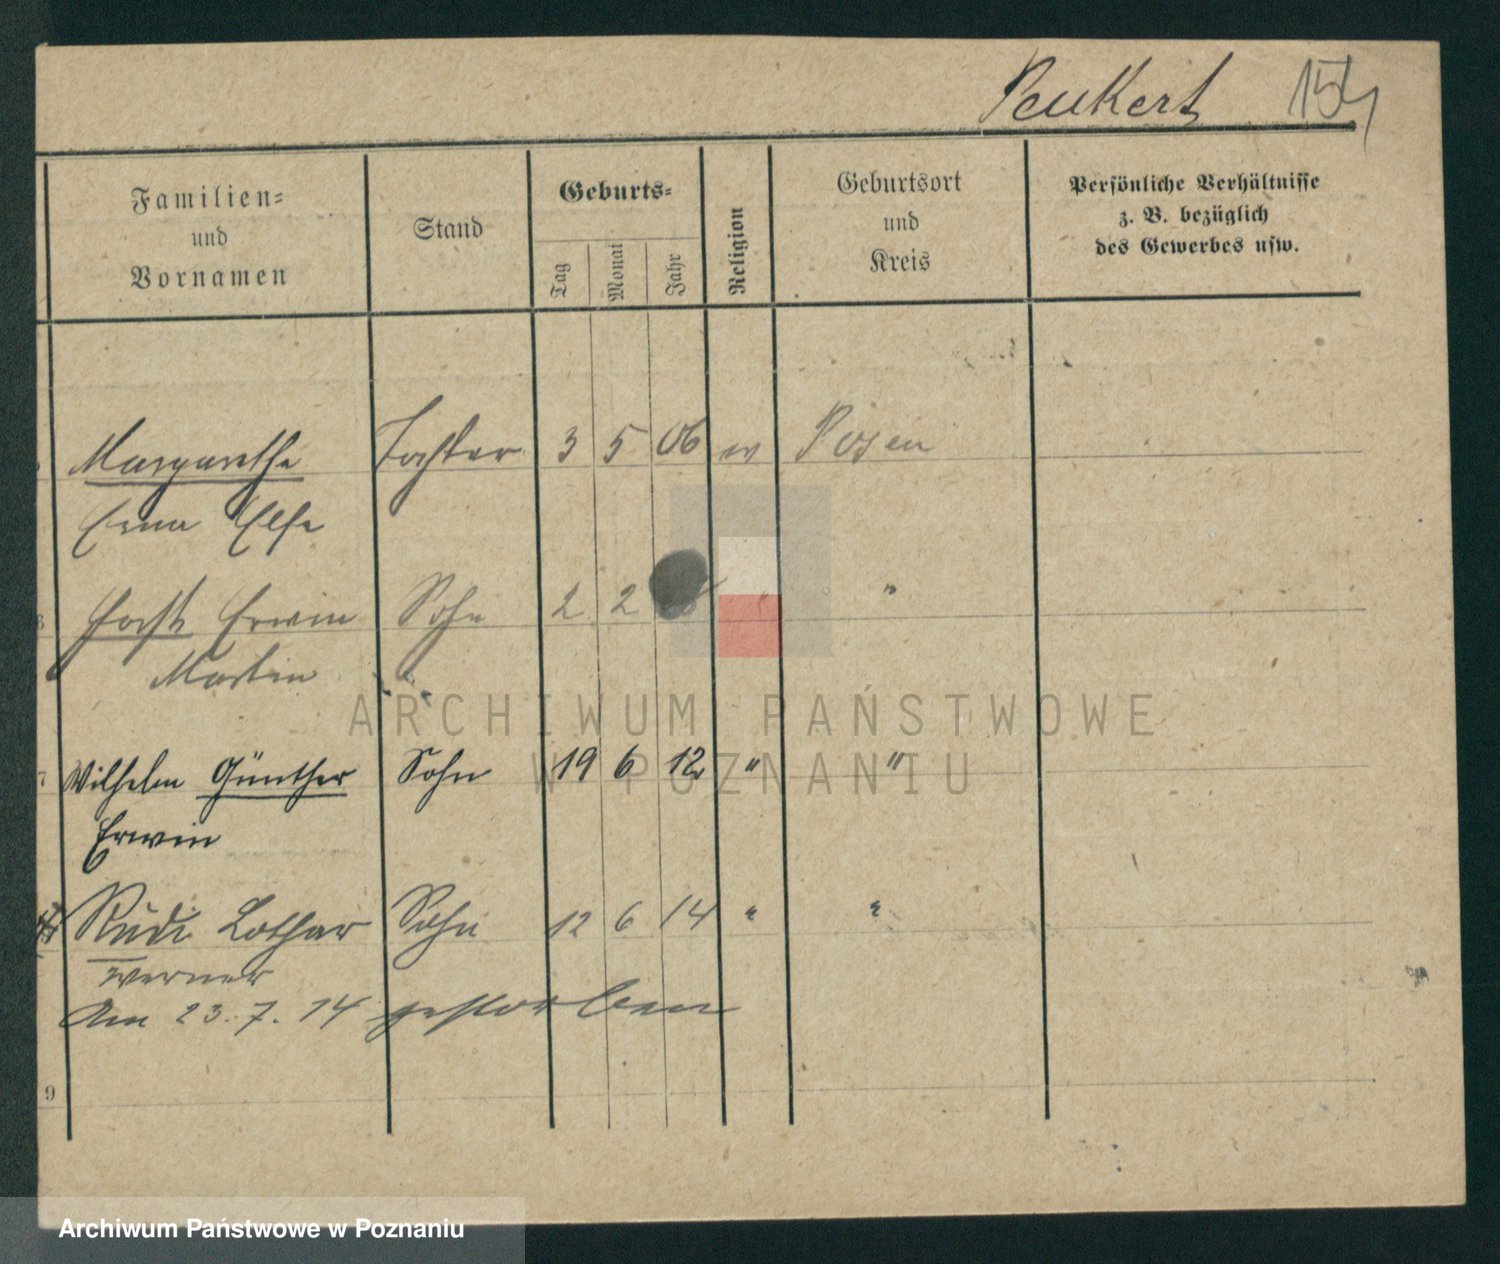 Peukert 154
Familien=
und
Vornamen
Stand
Geburts=
Tag
Monat
Jahr
Religion
Geburtsort
und
Kreis
Persönliche Verhältnisse
z. B. bezüglich
des Gewerbes usw.
Margarethe Tochter 3 5 06 ev Posen
Erna Else
6 Horst Erwin Sohn 2 2 "
Martin
7 Wilhelm Günther Sohn 19 6 12 " "
Erwin
Rudi Lothar Sohn 12 6 14 " "
Werner
Am 23. 7. 14 gestorben
9
ARCHIWUM PAŃSTWOWE
W POZNANIU
Archiwum Państwowe w Poznaniu